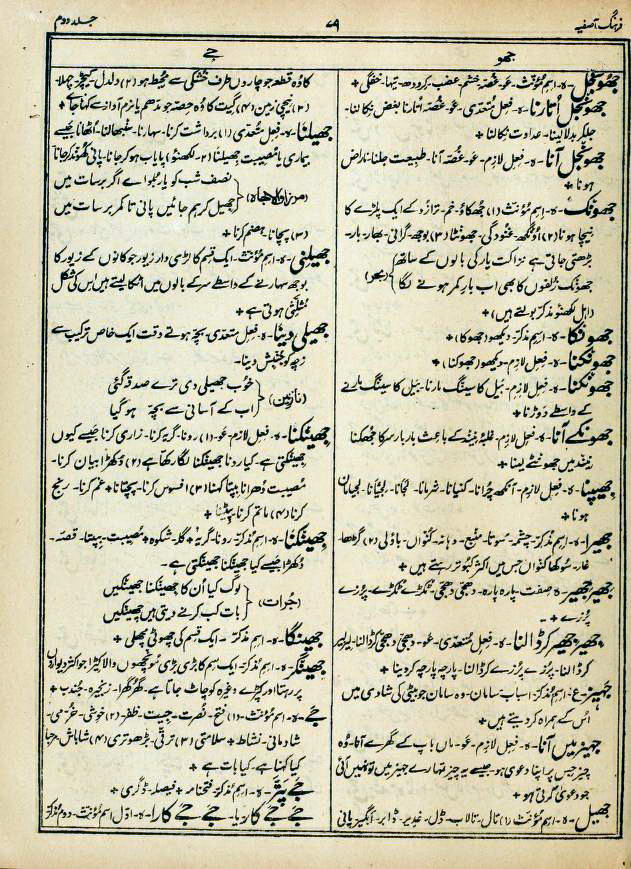 فرہنگ آصفیہ
۷۹
جلد دوم
جھو
جَے
جھونجل۔ ہ۔ اِسمِ مُؤنّث۔ عو۔ غُصّہ۔ خشم۔ غضب۔ کرودھ۔ تیہا۔ خفگی +
جھونجل اُتارنا۔ ہ۔ فعل مُتعدّی۔ عو۔ غُصّہ اُتارنا۔ بغض نِکالنا۔
بدلا لینا۔ عداوت نِکالنا +
جھونجل آنا۔ ہ۔ فعل لازم۔ عو۔ غُصّہ آنا۔ طبیعت جلنا۔ ناراض
ہونا +
جھونک۔ ہ۔ اِسمِ مُؤنّث (۱) جُھکاؤ۔ خم۔ ترازو کے ایک پلڑے کا
نیچا ہونا (۲) اُونگھ۔ غنُودگی۔ جھونٹا (۳) بوجھ۔ گرانی۔ بھار۔ بار۔
بڑھتی جاتی ہے نزاکت یار کی بالوں کے ساتھ
جھونک زُلفوں کا بھی اب بارِ کمر ہونے لگا
(اہلِ لکھنؤ مذکر بولتے ہیں) +
جھونکا۔ ہ۔ اِسم مذکر۔ دیکھو (جھوکا) +
جھونکنا۔ ہ۔ فعل لازم۔ دیکھو (جھوکنا) +
جھونکنا۔ ہ۔ فعل لازم۔ بَیل کا سینگ مارنا۔ بَیل کا سینگ مارنے
کے واسطے دَوڑنا +
جھونکے آنا۔ ہ۔ فعل لازم۔ غلبۂ نیند کے باعث بار بار سر کا جُھکنا
نیند میں جھونٹے لینا +
جھیپنا۔ ہ۔ فعل لازم۔ آنکھ چُرانا۔ کنیانا۔ شرمانا۔ لجانا۔
ہونا +
جھیرا۔ ہ۔ اِسم مُذکر۔ چشمہ۔ سوتا۔ منبع۔ دہانہ۔ کُنواں۔ باؤلی (۲) گڑھا۔
غار۔ سُوکھا کُنواں جس میں اکثر کبُوتر رہتے ہیں +
جھیر جھیر۔ ہ۔ صفت۔ پارہ پارہ۔ دھجّی دھجّی۔ ٹکڑے ٹکڑے۔ پُرزے
پُرزے +
جھیر جھیر کر ڈالنا۔ ہ۔ فعل مُتعدّی۔ عو۔ دھجّی دھجّی کر ڈالنا۔ لیر لیر
کر ڈالنا۔ پُرزے پُرزے کر ڈالنا۔ پارچہ پارچہ کر دینا +
جہیز۔ ع۔ اِسم مُذکر۔ اسباب۔ سامان۔ وہ سامان جو بیٹی کی شادی میں
اُس کے ہمراہ کر دیتے ہیں +
جہیز میں آنا۔ ہ۔ فعل لازم۔ عو۔ ماں باپ کے گھر سے آنا۔ وُہ
چیز جس پر اپنا دعویٰ ہو۔ جیسے یہ چیز تمہارے جہیز میں تو نہیں آئی
جو دعویٰ کرتی ہو +
جھیل۔ ہ۔ اِسمِ مُؤنّث (۱) تال۔ تالاب۔ ڈل۔ غدیر۔ ڈابر۔ آبگیر۔ پانی
کا وُہ قطعہ جو چاروں طرف خُشکی سے محیط ہو (۲) دلدل۔ کیچڑ۔ چہلا۔
(۳) نیچی زمین (۴) گیت کا وُہ حِصّہ جو مدھم یا نرم آواز سے کہا جائے +
جھیلنا۔ ہ۔ فعل مُتعدّی (۱) برداشت کرنا۔ سہارنا۔ سنبھالنا۔ اُٹھانا جیسے
بیماری یا مُصیبت جھیلنا (۲۔ لکھنؤ) پایاب ہو کر جانا۔ پانی
نصف شب کو یار آوے اگر برسات میں
جھیل کر ہم جائیں پانی تا کمر برسات میں
(۳) پچانا۔ ہضم کرنا +
جھیلنی۔ ہ۔ اِسمِ مُؤنّث۔ ایک قسم کا لڑی دار زیور جو کانوں کے زیور کا
بوجھ سہارنے کے واسطے سر کے بالوں میں اٹکا لیتے ہیں اِس کی شکل
ہوتی ہے +
جھیلی دینا۔ ہ۔ فعل متعدی۔ بچّہ ہوتے وقت ایک خاص ترکیب سے
زچہ کو جُنبش دینا۔
(نازنین)
خوب جھیلی دی ترے صدقہ گئی
اب کے آسانی سے بچّہ ہو گیا
جھینکنا۔ ہ۔ فعل لازم۔ عو۔ (۱) رونا۔ گریہ کرنا۔ زاری کرنا جیسے کیوں
جھینکتی ہے۔ کیا رونا جھینکنا لگا رکھا ہے (۲) دُکھڑا بیان کرنا۔
مُصیبت دُھرانا۔ بپتا کہنا (۳) افسوس کرنا۔ پچھتانا + غم کرنا۔ رنج
کرنا (۴) ماتم کرنا۔ پیٹنا +
جھینکنا۔ ہ۔ اِسم مُذکر۔ رونا۔ گریہ + گلہ۔ شکوہ + مُصیبت۔ بپتا۔ قصّہ۔
دُکھڑا جیسے کیا جھینکنا جھینکتی ہے۔
(جُرأت)
لوگ کیا اُن کا جھینکنا جھینکیں
بات کب کرنے دیتی ہیں چھینکیں
جھینگا۔ ہ۔ اِسم مُذکر۔ ایک قسم کی چھوٹی مچھلی +
جھینگر۔ ہ۔ اِسم مُذکر۔ ایک قسم کا بڑی بڑی مُونچھوں والا کیڑا جو اکثر دیواروں
پر رہتا اور کپڑے وغیرہ کو چاٹ جاتا ہے۔ گھرگھرا۔ زنجرہ۔ جُندب +
جَے۔ ہ۔ اِسمِ مُؤنّث۔ (۱) فتح۔ نُصرت۔ جیت۔ ظفر (۲) خوشی۔ خُرّمی۔
شادمانی۔ نشاط + سلامتی (۳) ترقّی۔ بڑھوتری (۴) شاباش۔ مرحبا
کیا کہنا ہے۔ کیا بات ہے +
جَے پَتّر۔ ہ۔ اِسم مُذکر۔ فتحنامہ + فیصلہ۔ ڈگری +
جَے جَے کار یا۔ جَے جَے کارا۔ ہ۔ اوّل اِسمِ مُؤنّث۔ دوم مُذکر